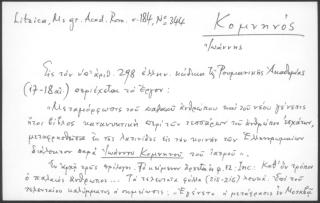 Litzica, Ms gr. Acad. Rom. σ. 184, No 344
Κομνηνός
Ἰωάννης
Εἰς τὸν ὑπ' ἀριθ. 298 ἑλλην. κώδικα τῆς Ρουμανικῆς Ἀκαδημίας
(17-18 αἰ.) περιέχεται τὸ ἔργον:
"Μεταμόρφωσις τοῦ παλαιοῦ ἀνθρώπου καὶ τοῦ νέου γένεσις
ἤτοι βίβλος κατανυκτικὴ περὶ τῶν τεσσάρων τοῦ ἀνθρώπου ἐσχάτων,
μεταφρασθεῖσα ἐκ τῆς λατινίδος εἰς τὴν κοινὴν τῶν Ἑλληνορωμαίων
διάλεκτον παρὰ Ἰωάννου Κομνηνοῦ τοῦ ἰατροῦ".
Ἐν ἀρχῇ πρὸς πρόλογον. Τὸ κείμενον ἄρχεται φ. 12: Inc: Καθ' ὃν τρόπον
ὁ παλαιὸς ἄνθρωπος... Τὰ τελευταῖα φύλλα (215-216) λευκά. Ἐπὶ τοῦ
τελευταίου καλύμματος ἡ σημείωσις: "Ἐγένετο ἡ μετάφρασις ἐν Μοσκβᾷ